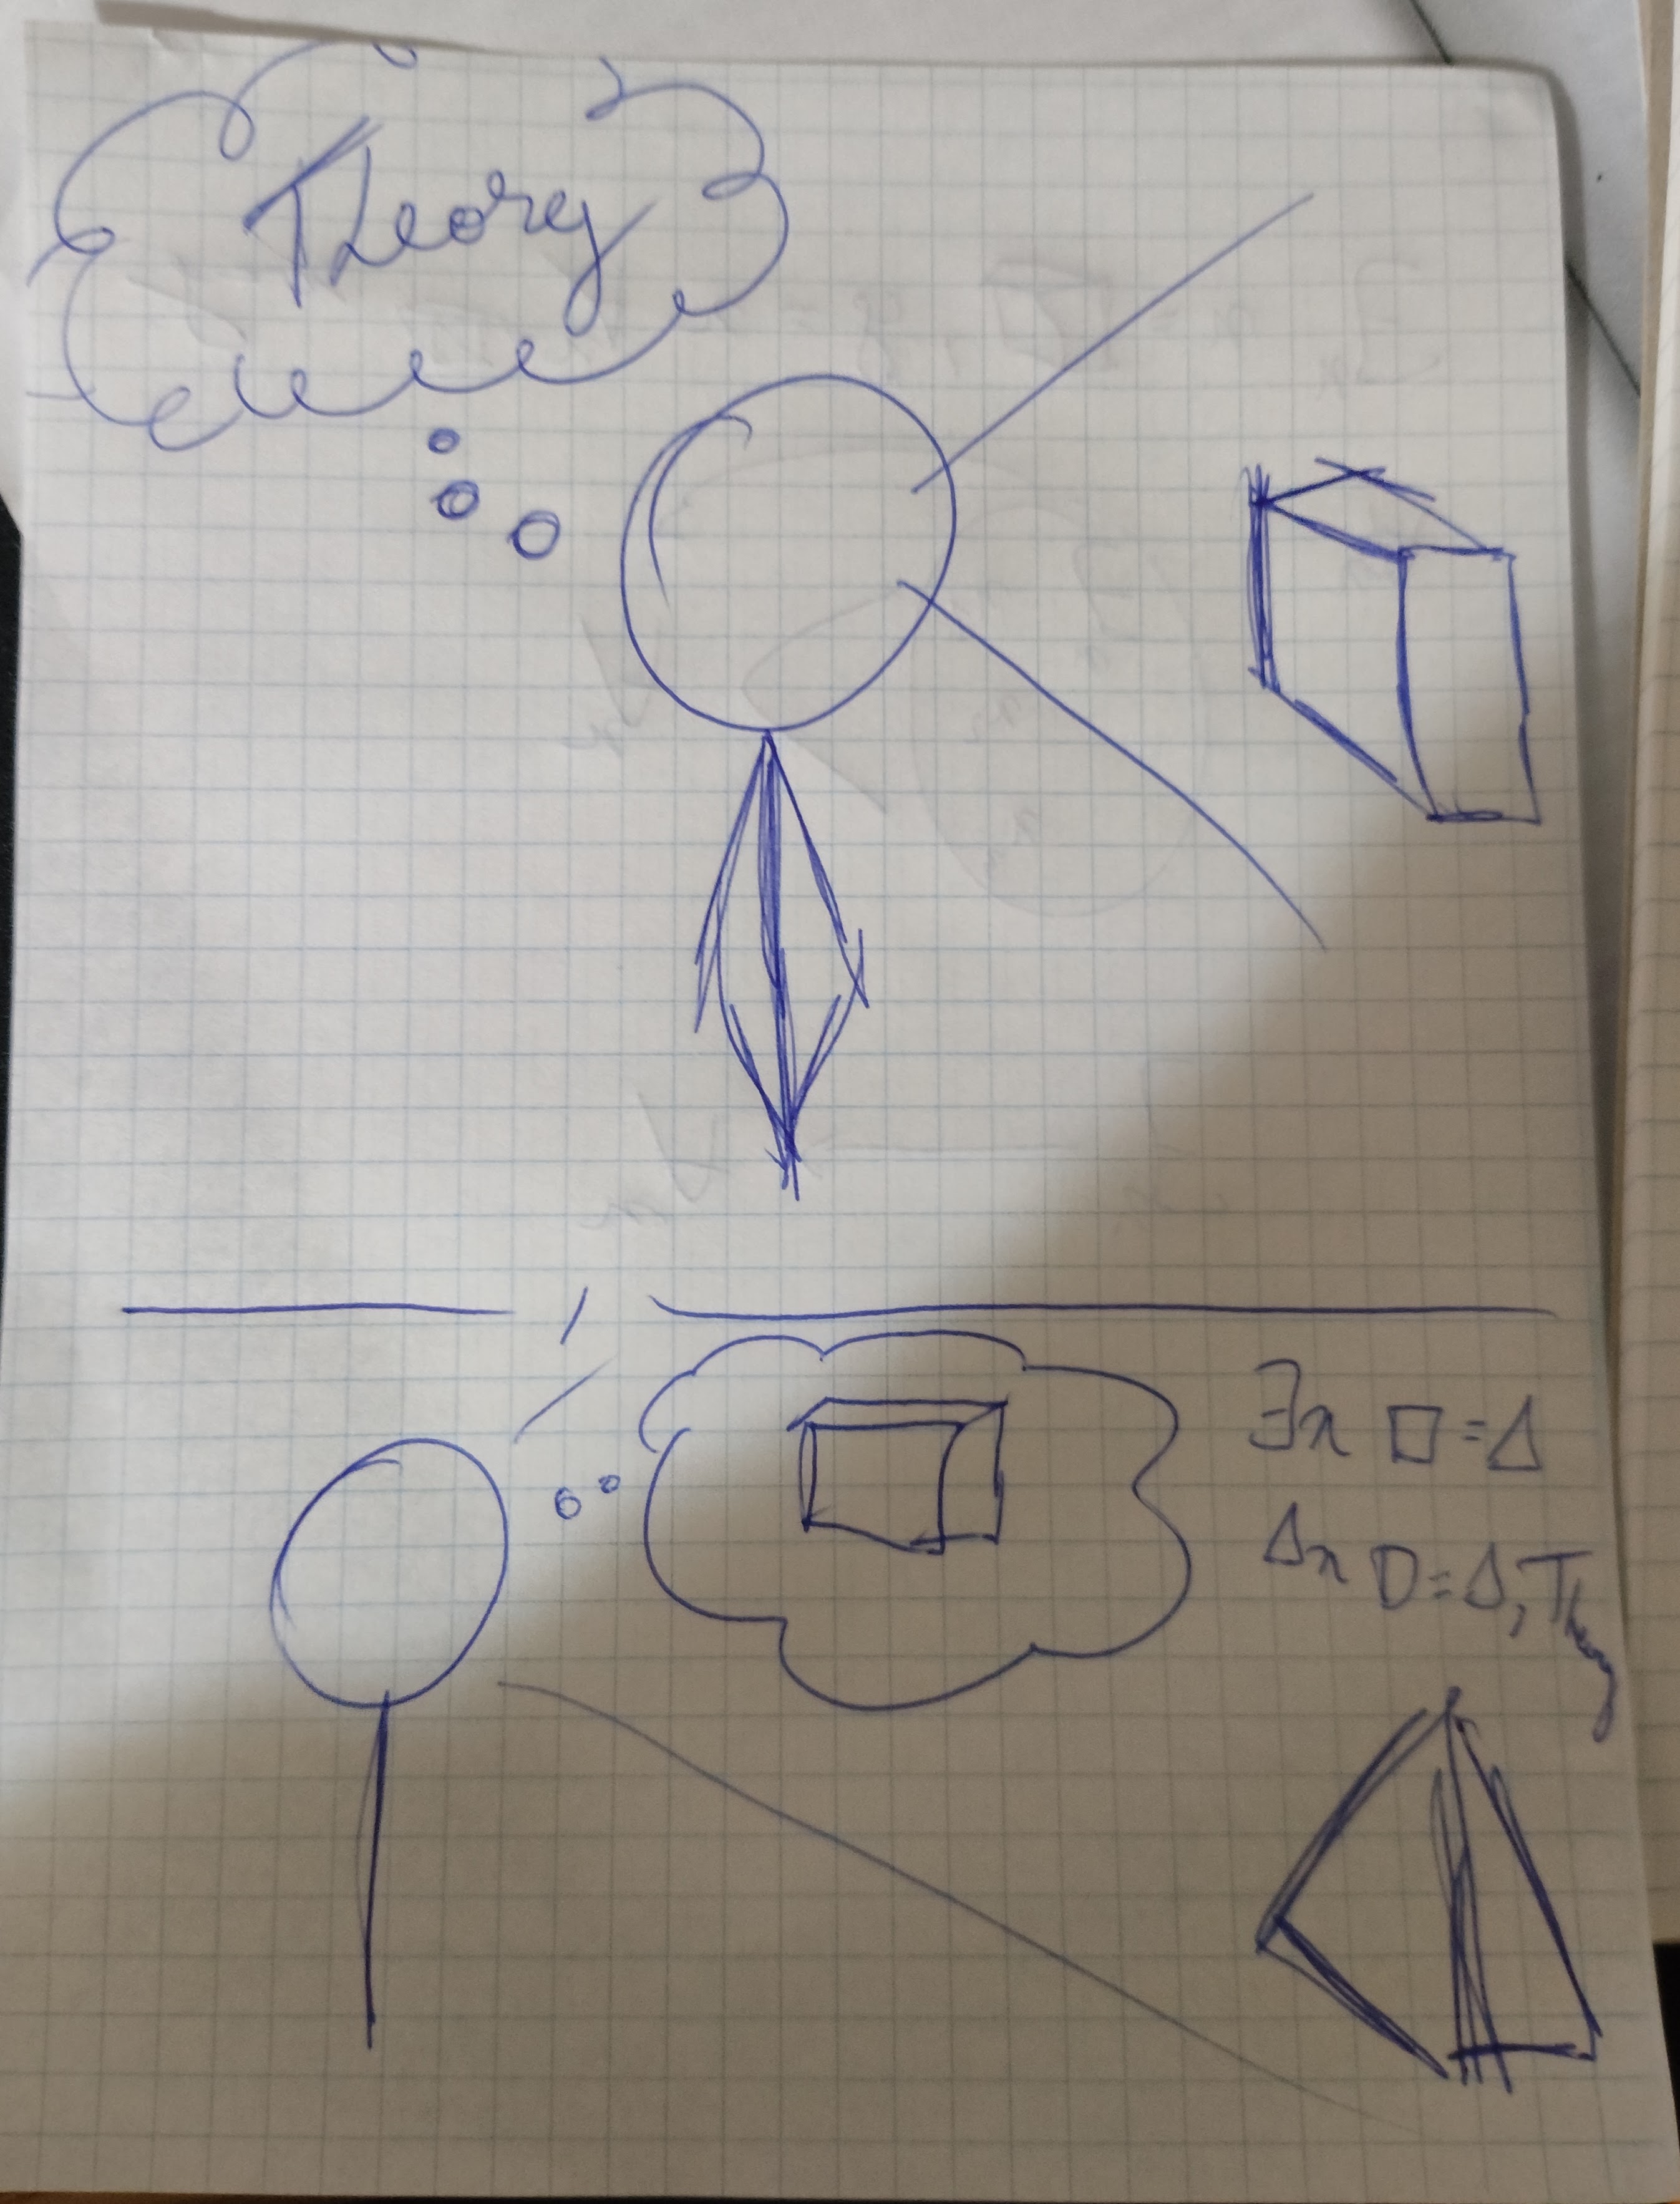 Theory
∃x □ = Δ
Δx D = Δ, Theory